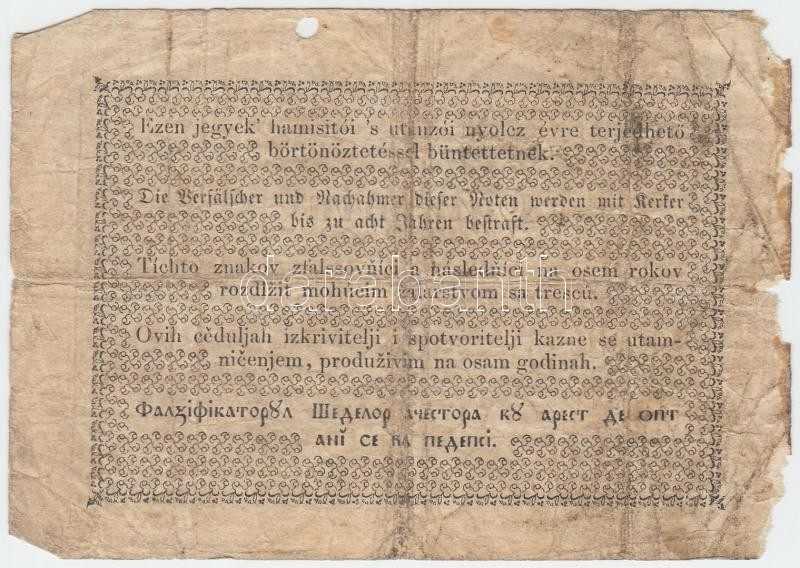 Ezen jegyek' hamisitói 's utánzói nyolcz évre terjedhető
börtönöztetéssel büntettetnek.
Die Verfälscher und Nachahmer dieser Noten werden mit Kerker
bis zu acht Jahren bestraft.
Tíchto znakov zfalšovňíci a následníci na osem rokov
rozdĺžiť mohúcim žalárstvom sa trescú.
Ovih cěduljah izkrivitelji i spotvoritelji kazne se utam-
ničenjem, produživim na osam godinah.
Фалзіфікаторꙋл Шеделор ачестора кꙋ арест де опт
анĭ се ва педепсі.
darabanth